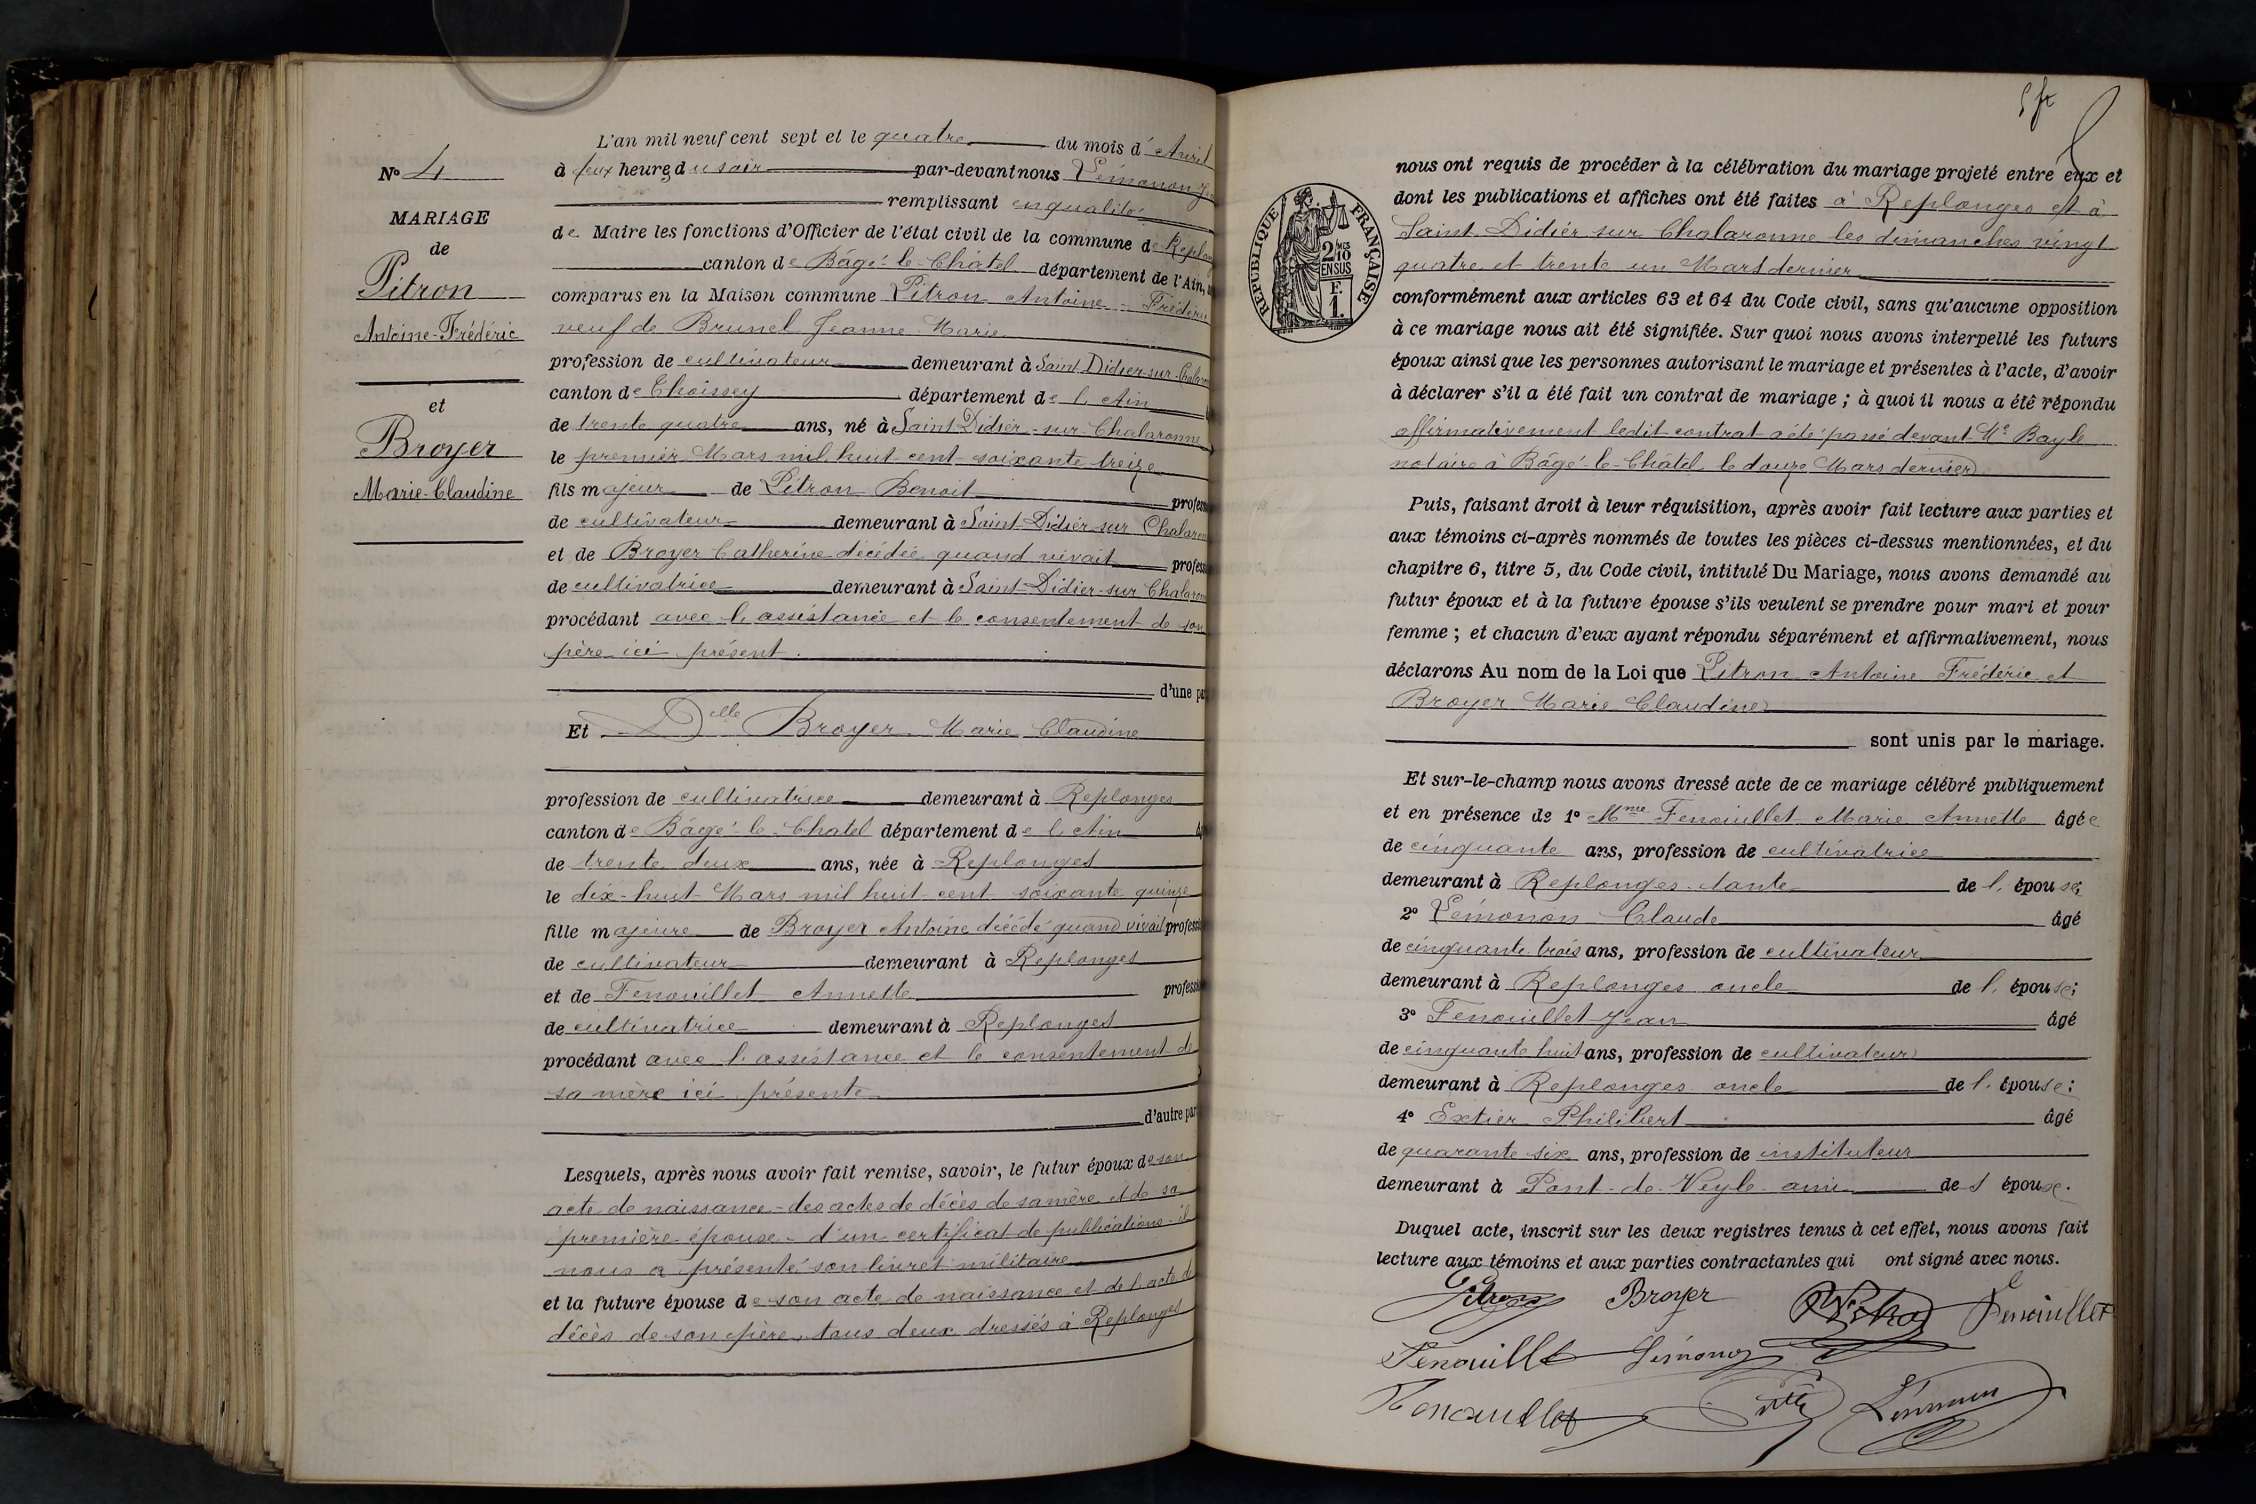 L'an mil neuf cent sept et le quatre du mois d'Avril
à deux heures du soir par-devant nous Lémonon
remplissant en qualité
de Maire les fonctions d'Officier de l'état civil de la commune de Replon
canton de Bâgé-le-Châtel département de l'Ain,
comparus en la Maison commune Pitron Antoine Frédéric
veuf de Brunel Jeanne Marie
profession de cultivateur demeurant à Saint Didier-sur-Chalaron
canton de Thoissey département de l'Ain
de trente quatre ans, né à Saint Didier-sur-Chalaronne
le premier Mars mil huit cent soixante treize
fils majeur de Pitron Benoit profess
de cultivateur demeurant à Saint-Didier-sur Chalaron
et de Broyer Catherine décédée quand vivait profess
de cultivatrice demeurant à Saint-Didier-sur Chalaron
procédant avec l'assistance et le consentement de son
père ici présent.
d'une pa
Et Delle Broyer Marie Claudine
profession de cultivatrice demeurant à Replonges
canton de Bâgé-le-Chatel département de l'Ain âg
de trente deux ans, née à Replonges
le dix-huit Mars mil huit cent soixante quinze
fille majeure de Broyer Antoine décédé quand vivait profess
de cultivateur demeurant à Replonges
et de Fenouillet Annette profess
de cultivatrice demeurant à Replonges
procédant avec l'assistance et le consentement de
sa mère ici présente
d'autre par
Lesquels, après nous avoir fait remise, savoir, le futur époux de son
acte de naissance - des actes de décès de sa mère et de sa
première épouse - d'un certificat de publications - il
nous a présenté son livret militaire
et la future épouse de son acte de naissance et de l'acte de
décès de son père, tous deux dressés à Replonges
N° 4
MARIAGE
de
Pitron
Antoine-Frédéric
et
Broyer
Marie-Claudine
5ft
REPUBLIQUE FRANÇAISE
2/10 MES
EN SUS
F.
1.
nous ont requis de procéder à la célébration du mariage projeté entre eux et
dont les publications et affiches ont été faites à Replonges et à
Saint Didier sur Chalaronne les dimanches vingt
quatre et trente un Mars dernier
conformément aux articles 63 et 64 du Code civil, sans qu'aucune opposition
à ce mariage nous ait été signifiée. Sur quoi nous avons interpellé les futurs
époux ainsi que les personnes autorisant le mariage et présentes à l'acte, d'avoir
à déclarer s'il a été fait un contrat de mariage ; à quoi il nous a été répondu
affirmativement ledit contrat a été passé devant Me Bayle
notaire à Bâgé-le-Châtel le douze Mars dernier
Puis, faisant droit à leur réquisition, après avoir fait lecture aux parties et
aux témoins ci-après nommés de toutes les pièces ci-dessus mentionnées, et du
chapitre 6, titre 5, du Code civil, intitulé Du Mariage, nous avons demandé au
futur époux et à la future épouse s'ils veulent se prendre pour mari et pour
femme ; et chacun d'eux ayant répondu séparément et affirmativement, nous
déclarons Au nom de la Loi que Pitron Antoine Frédéric et
Broyer Marie Claudine
sont unis par le mariage.
Et sur-le-champ nous avons dressé acte de ce mariage célébré publiquement
et en présence de 1° Mme Fenouillet Marie Annette âgée
de cinquante ans, profession de cultivatrice
demeurant à Replonges tante de l'épouse;
2° Lémonon Claude âgé
de cinquante trois ans, profession de cultivateur
demeurant à Replonges oncle de l'épouse;
3° Fenouillet Jean âgé
de cinquante huit ans, profession de cultivateur
demeurant à Replonges oncle de l'épouse;
4° Extier Philibert âgé
de quarante six ans, profession de instituteur
demeurant à Pont-de-Veyle ami de l'épouse.
Duquel acte, inscrit sur les deux registres tenus à cet effet, nous avons fait
lecture aux témoins et aux parties contractantes qui ont signé avec nous.
Pitron Broyer Pitron Fenouillet
Fenouillet Lémonon
Fenouillet Extier Lémonon